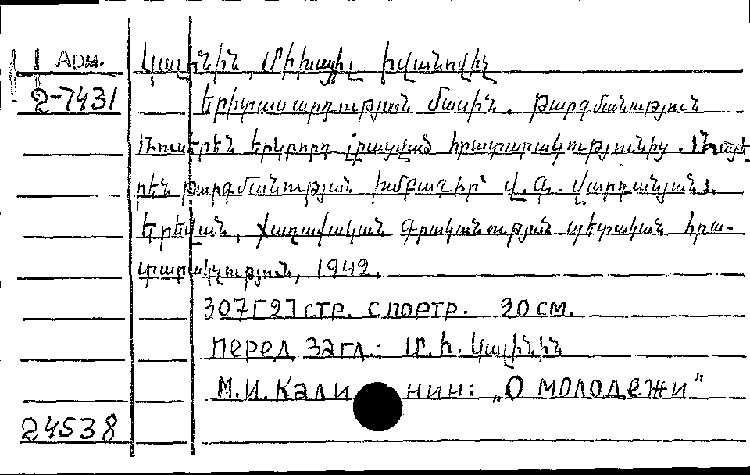 Арм. Կալինին, Միխայիլ Իվանովիչ
2-7431 Երիտասարդության մասին. Թարգմանություն
Ռուսերեն երկրորդ լրացված հրատարակությունից. Հայե
րեն թարգմանության խմբագիր՝ Վ. Գ. Վարդանյան.
Երևան, Քաղաքական գրականության պետական հրա-
տարակչություն, 1942.
307[2] стр. с портр. 20 см.
перед загл.: Մ. Ի. Կալինին
М. И. Калинин: „О молодежи"
24538